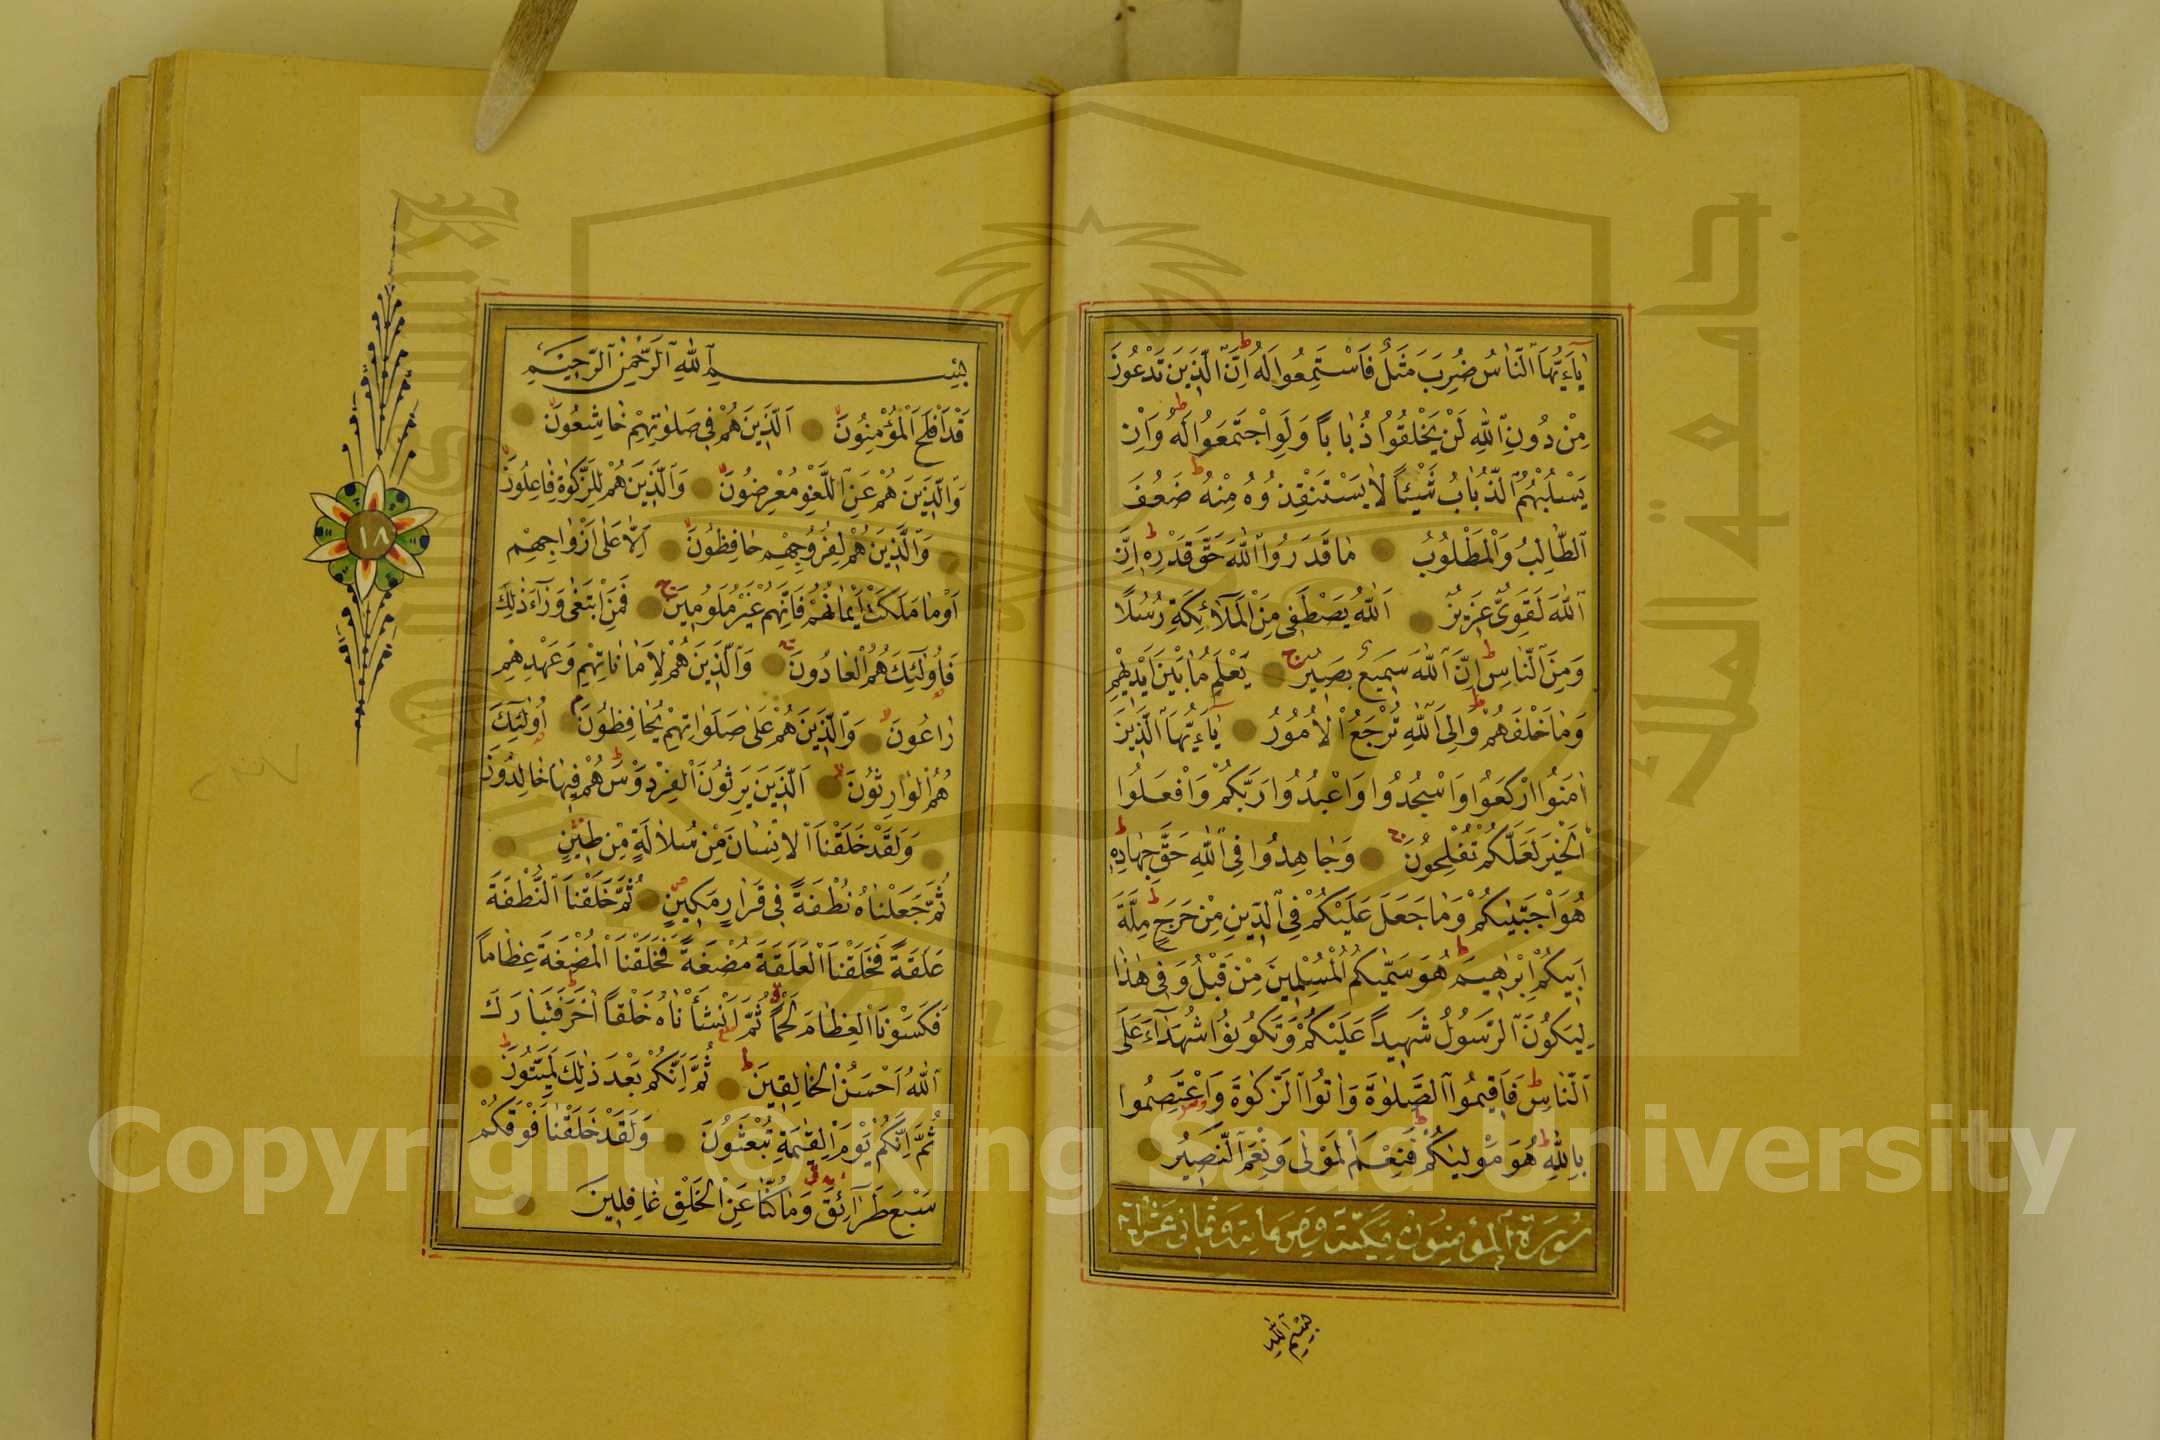 يَاۤءَيُّهَا ٱلنَّاسُ ضُرِبَ مَثَلٌ فَاسْتَمِعُوا لَهُ اِنَّ ٱلَّذِينَ تَدْعُونَ
مِنْ دُونِ ٱللّٰهِ لَنْ يَخْلُقُوا ذُبَابًا وَلَوِ اجْتَمَعُوا لَهُ وَاِنْ
يَسْلُبْهُمُ ٱلذُّبَابُ شَيْئًا لَا يَسْتَنْقِذُوهُ مِنْهُ ضَعُفَ
ٱلطَّالِبُ وَالْمَطْلُوبُ مَا قَدَرُوا ٱللّٰهَ حَقَّ قَدْرِهِ اِنَّ
ٱللّٰهَ لَقَوِىٌّ عَزِيزٌ اَللّٰهُ يَصْطَفِى مِنَ الْمَلَاۤئِكَةِ رُسُلًا
وَمِنَ ٱلنَّاسِ اِنَّ ٱللّٰهَ سَمِيعٌ بَصِيرٌ يَعْلَمُ مَا بَيْنَ اَيْدِيهِمْ
وَمَا خَلْفَهُمْ وَاِلَى ٱللّٰهِ تُرْجَعُ الْاُمُورُ يَاۤءَيُّهَا ٱلَّذِينَ
اٰمَنُوا ارْكَعُوا وَاسْجُدُوا وَاعْبُدُوا رَبَّكُمْ وَافْعَلُوا
الْخَيْرَ لَعَلَّكُمْ تُفْلِحُونَ وَجَاهِدُوا فِى ٱللّٰهِ حَقَّ جِهَادِهِ
هُوَ اجْتَبٰيكُمْ وَمَا جَعَلَ عَلَيْكُمْ فِى ٱلدِّينِ مِنْ حَرَجٍ مِلَّةَ
اَبِيكُمْ اِبْرٰهِيمَ هُوَ سَمّٰيكُمُ الْمُسْلِمِينَ مِنْ قَبْلُ وَفِى هٰذَا
لِيَكُونَ ٱلرَّسُولُ شَهِيدًا عَلَيْكُمْ وَتَكُونُوا شُهَدَاۤءَ عَلَى
ٱلنَّاسِ فَاَقِيمُوا ٱلصَّلٰوةَ وَاٰتُوا ٱلزَّكٰوةَ وَاعْتَصِمُوا
بِاللّٰهِ هُوَ مَوْلٰيكُمْ فَنِعْمَ الْمَوْلٰى وَنِعْمَ ٱلنَّصِيرُ
سُورَةُ ٱلْمُؤْمِنُونَ مَكِّيَّةٌ وَهِىَ مِائَةٌ وَثَمَانِىَ عَشْرَ اٰيَة
بِسْمِ ٱللّٰهِ
بِسْمِ ٱللّٰهِ ٱلرَّحْمٰنِ ٱلرَّحِيمِ
قَدْ اَفْلَحَ الْمُؤْمِنُونَ اَلَّذِينَ هُمْ فِى صَلَوٰتِهِمْ خَاشِعُونَ
وَٱلَّذِينَ هُمْ عَنِ ٱللَّغْوِ مُعْرِضُونَ وَٱلَّذِينَ هُمْ لِلزَّكٰوةِ فَاعِلُونَ
وَٱلَّذِينَ هُمْ لِفُرُوجِهِمْ حَافِظُونَ اِلَّا عَلٰى اَزْوَاجِهِمْ
اَوْ مَا مَلَكَتْ اَيْمَانُهُمْ فَاِنَّهُمْ غَيْرُ مَلُومِينَ فَمَنِ ابْتَغٰى وَرَاۤءَ ذٰلِكَ
فَاُولٰۤئِكَ هُمُ الْعَادُونَ وَٱلَّذِينَ هُمْ لِاَمَانَاتِهِمْ وَعَهْدِهِمْ
رَاعُونَ وَٱلَّذِينَ هُمْ عَلٰى صَلَوَاتِهِمْ يُحَافِظُونَ اُولٰۤئِكَ
هُمُ الْوَارِثُونَ اَلَّذِينَ يَرِثُونَ الْفِرْدَوْسَ هُمْ فِيهَا خَالِدُونَ
وَلَقَدْ خَلَقْنَا الْاِنْسَانَ مِنْ سُلَالَةٍ مِنْ طِينٍ
ثُمَّ جَعَلْنَاهُ نُطْفَةً فِى قَرَارٍ مَكِينٍ ثُمَّ خَلَقْنَا ٱلنُّطْفَةَ
عَلَقَةً فَخَلَقْنَا الْعَلَقَةَ مُضْغَةً فَخَلَقْنَا الْمُضْغَةَ عِظَامًا
فَكَسَوْنَا الْعِظَامَ لَحْمًا ثُمَّ اَنْشَأْنَاهُ خَلْقًا اٰخَرَ فَتَبَارَكَ
ٱللّٰهُ اَحْسَنُ الْخَالِقِينَ ثُمَّ اِنَّكُمْ بَعْدَ ذٰلِكَ لَمَيِّتُونَ
ثُمَّ اِنَّكُمْ يَوْمَ الْقِيٰمَةِ تُبْعَثُونَ وَلَقَدْ خَلَقْنَا فَوْقَكُمْ
سَبْعَ طَرَاۤئِقَ وَمَا كُنَّا عَنِ الْخَلْقِ غَافِلِينَ
١٨
جامعة الملك
King Saud University
1957
Copyright © King Saud University